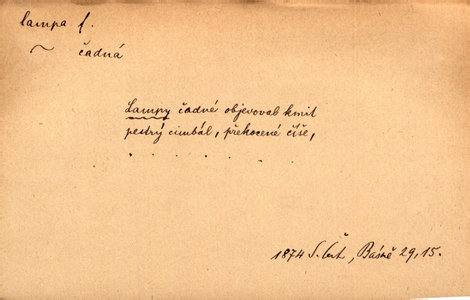 lampa f.
~ čadná
Lampy čadné objevoval kmit
pestrý cimbál, překocené číše,
. . . . . . . .
1874 S. Čech, Básně 29, 15.